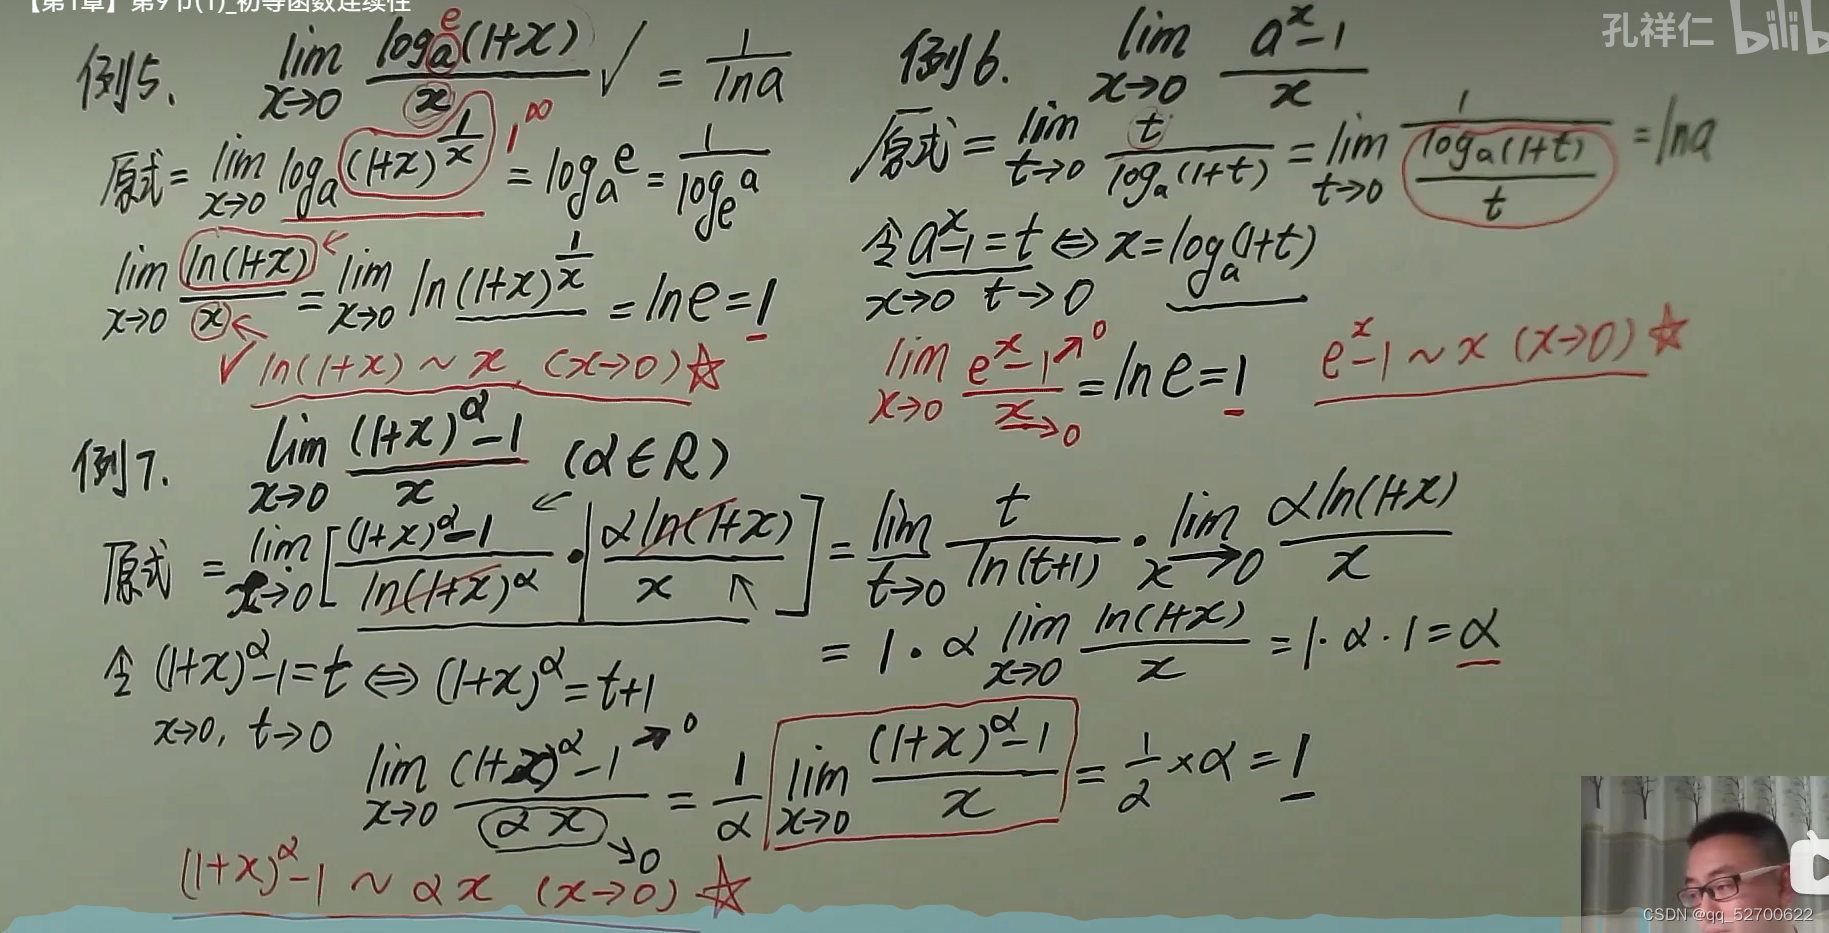 【第1章】第9节(1)_初等函数连续性
孔祥仁 bilib
例5. lim x→0 logₐ(1+x)/x ✓ = 1/lna
e
原式 = lim x→0 logₐ(1+x)^(1/x) = logₐe = 1/logₑa
1^∞
lim x→0 ln(1+x)/x = lim x→0 ln(1+x)^(1/x) = lne = 1
✓ ln(1+x) ~ x, (x→0) ☆
例6. lim x→0 (a^x-1)/x
原式 = lim t→0 t/logₐ(1+t) = lim t→0 1/(logₐ(1+t)/t) = lna
令 a^x-1=t ⇔ x=logₐ(1+t)
x→0 t→0
lim x→0 (e^x-1)/x = lne = 1
→0
→0
e^x-1 ~ x (x→0) ☆
例7. lim x→0 ((1+x)^α-1)/x (α∈R)
原式 = lim x→0 [((1+x)^α-1)/ln(1+x)^α · αln(1+x)/x] = lim t→0 t/ln(t+1) · lim x→0 αln(1+x)/x
= 1·α lim x→0 ln(1+x)/x = 1·α·1 = α
令 (1+x)^α-1=t ⇔ (1+x)^α=t+1
x→0, t→0
lim x→0 ((1+x)^α-1)/(αx) = 1/α lim x→0 ((1+x)^α-1)/x = 1/α × α = 1
→0
→0
(1+x)^α-1 ~ αx (x→0) ☆
CSDN @qq_52700622